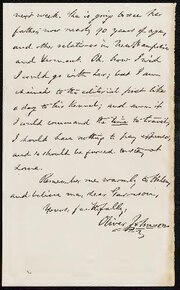 next week. She is going to see her
father, now nearly 90 years of age,
and other relatives in New Hampshire
and Vermont. Oh, how I wish
I could go with her; but I am
chained to the editorial post like
a dog to his kennel; and even if
I could command the time to travel,
I should have nothing to pay expenses,
and so should be forced to stay at
home.
Remember me warmly to
and believe me, dear Garrison,
Yours, faithfully,
Oliver Johnson